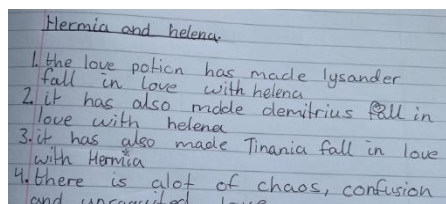 Hermia and helena.
1. the love potion has made lysander
fall in love with helena
2. it has also made demitrius fall in
love with helena
3. it has also made Tinania fall in love
with Hermia
4. there is alot of chaos, confusion
and unrequited love